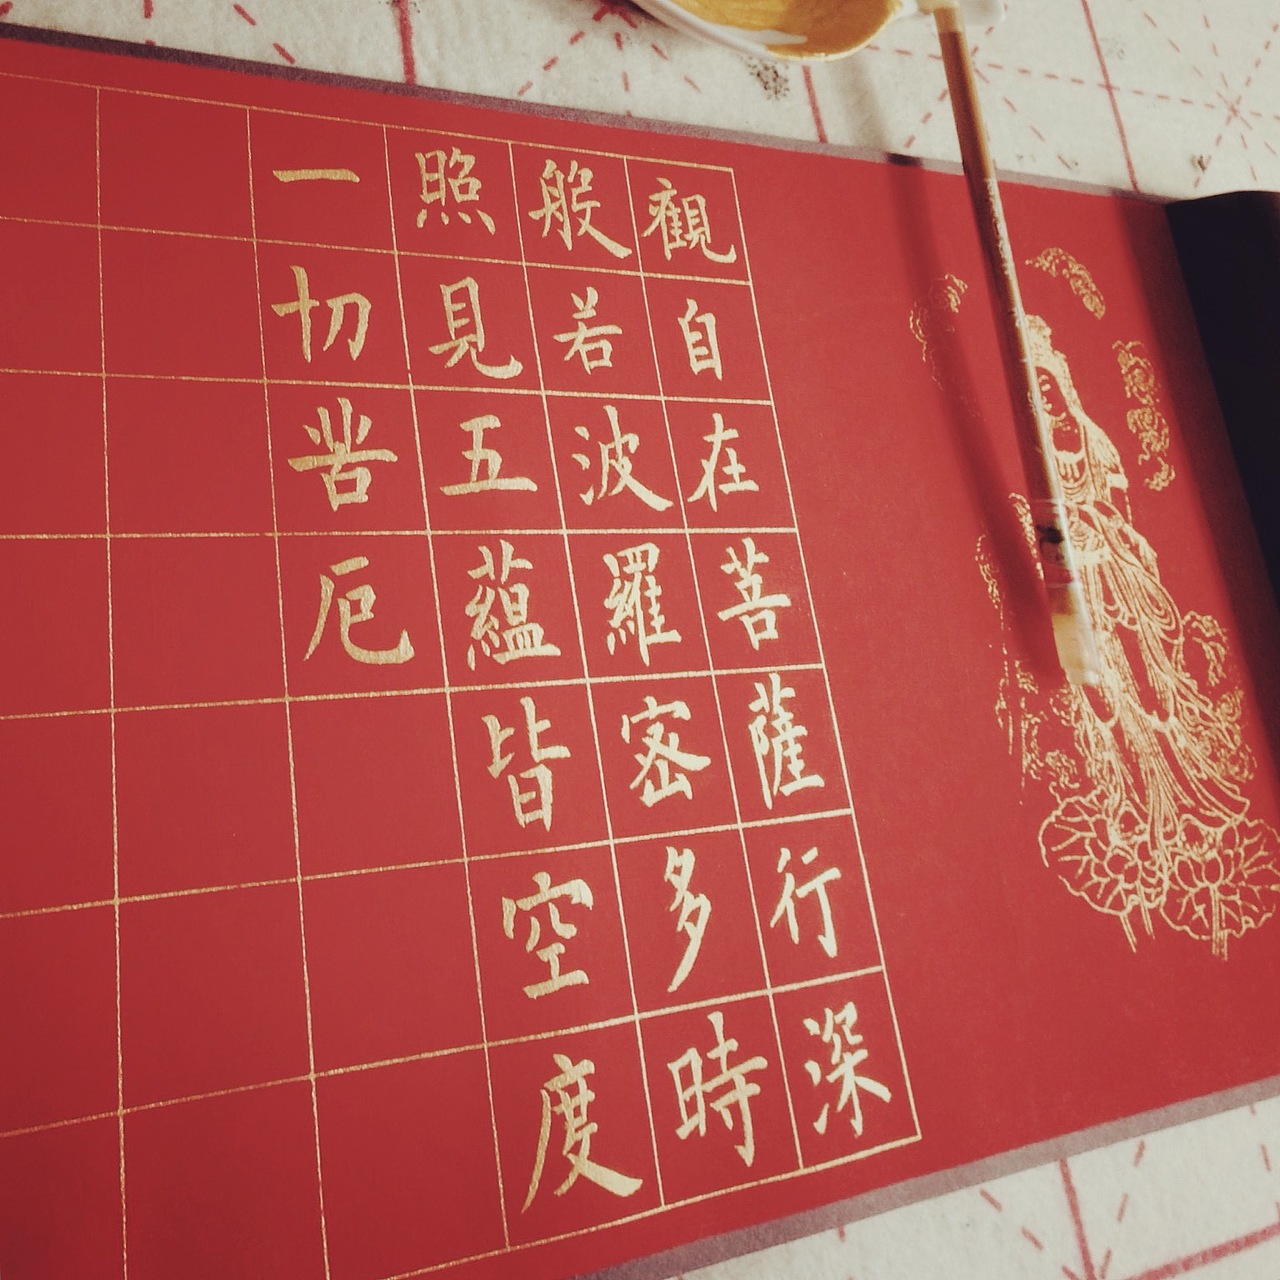 觀自在菩薩行深
般若波羅密多時
照見五蘊皆空度
一切苦厄